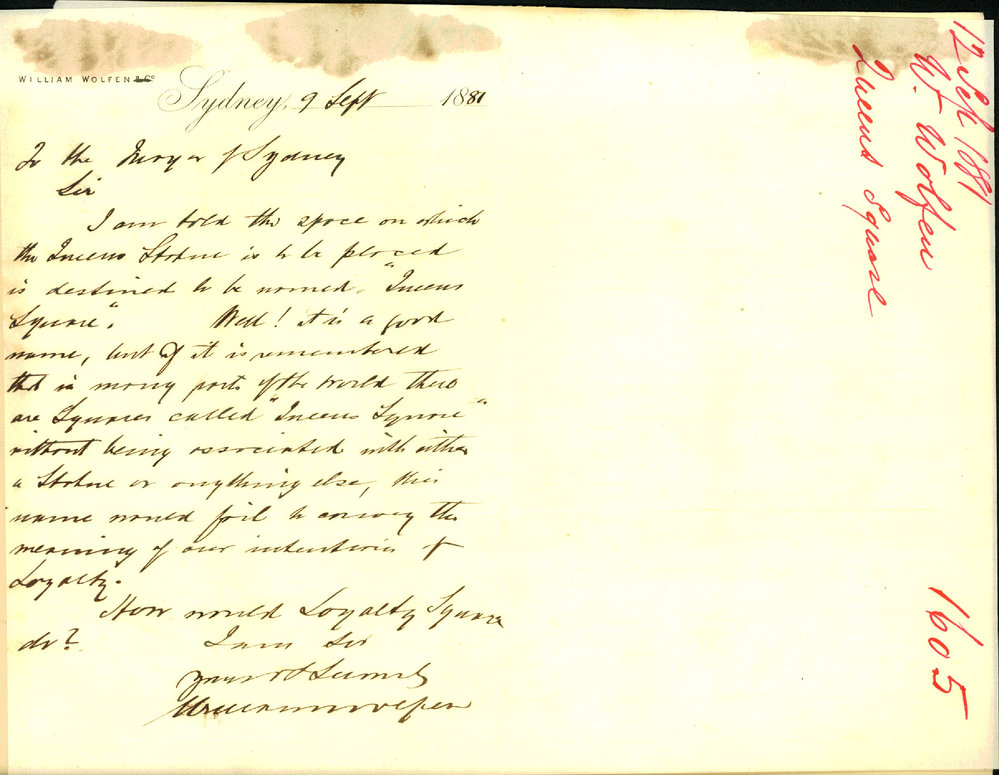 WILLIAM WOLFEN & Co
Sydney, 9 Sept 1881
To the Mayor of Sydney
Sir
I am told the space on which
the Queens Statue is to be placed
is destined to be named "Queens
Square". Well! it is a good
name, but if it is remembered
that in many parts of the World there
are Squares called "Queens Square"
without being associated with either
a Statue or anything else, this
name would fail to convey the
meaning of our intentions of
Loyalty.
How would Loyalty Square
do? I am Sir
your Obt Servant
William Wolfen
12 Sep 1881
W. Wolfen
Queens Square
1605